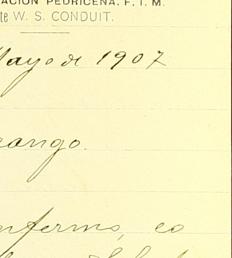 ACIÓN PEDRICEÑA. F. I. M.
te W. S. CONDUIT.
Mayo de 1907
ango.
nfermo, co